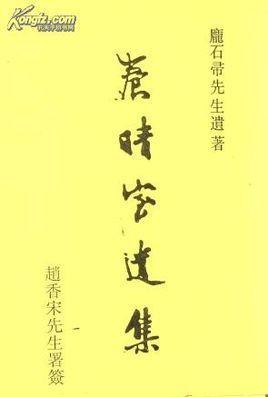 Kongfz.com
龐石帚先生遺著
養晴室遺集
趙香宋先生署簽